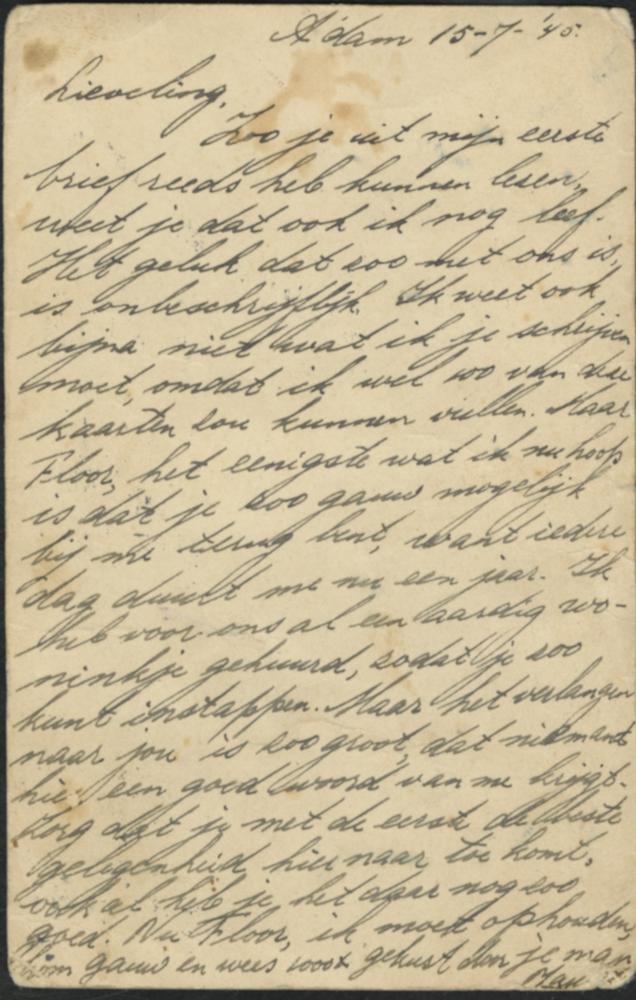 A'dam 15-7-'45.
Lieveling,
Zoo je uit mijn eerste
brief reeds heb kunnen lezen,
weet je dat ook ik nog leef.
Het geluk dat zoo met ons is,
is onbeschrijflijk. Ik weet ook
bijna niet wat ik je schrijven
moet, omdat ik wel 100 van deze
kaarten zou kunnen vullen. Maar
Floor, het eenigste wat ik nu hoop
is dat je zoo gauw mogelijk
bij me terug bent, want iedere
dag duurt me nu een jaar. Ik
heb voor ons al een aardig wo-
ninkje gehuurd, zodat je zoo
kunt instappen. Maar het verlangen
naar jou is zoo groot, dat niemand
hier een goed woord van me krijgt.
Zorg dat je met de eerste de beste
gelegenheid hier naar toe komt,
ook al heb je het daar nog zoo
goed. Nu Floor, ik moet ophouden,
kom gauw en wees gekust door je man